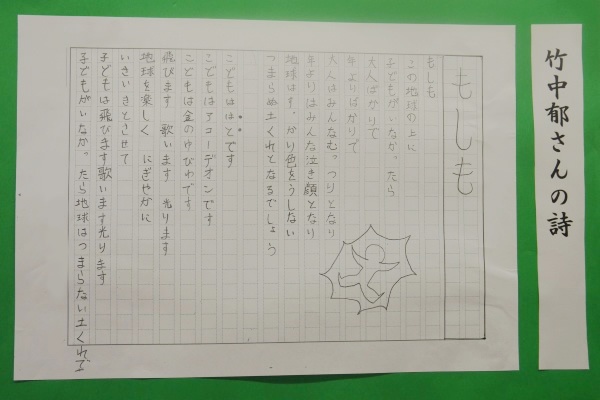 竹中郁さんの詩
もしも
もしも
この地球の上に
子どもがいなかったら
大人ばかりで
年よりばかりで
大人はみんなむっつりとなり
年よりはみんな泣き顔となり
地球はすっかり色をうしない
つまらぬ土くれとなるでしょう
こどもははとです
こどもはアコーデオンです
こどもは金のゆびわです
飛びます 歌います 光ります
地球を楽しく にぎやかに
いきいきとさせて
子どもは飛びます歌います光ります
子どもがいなかったら地球はつまらない土くれで